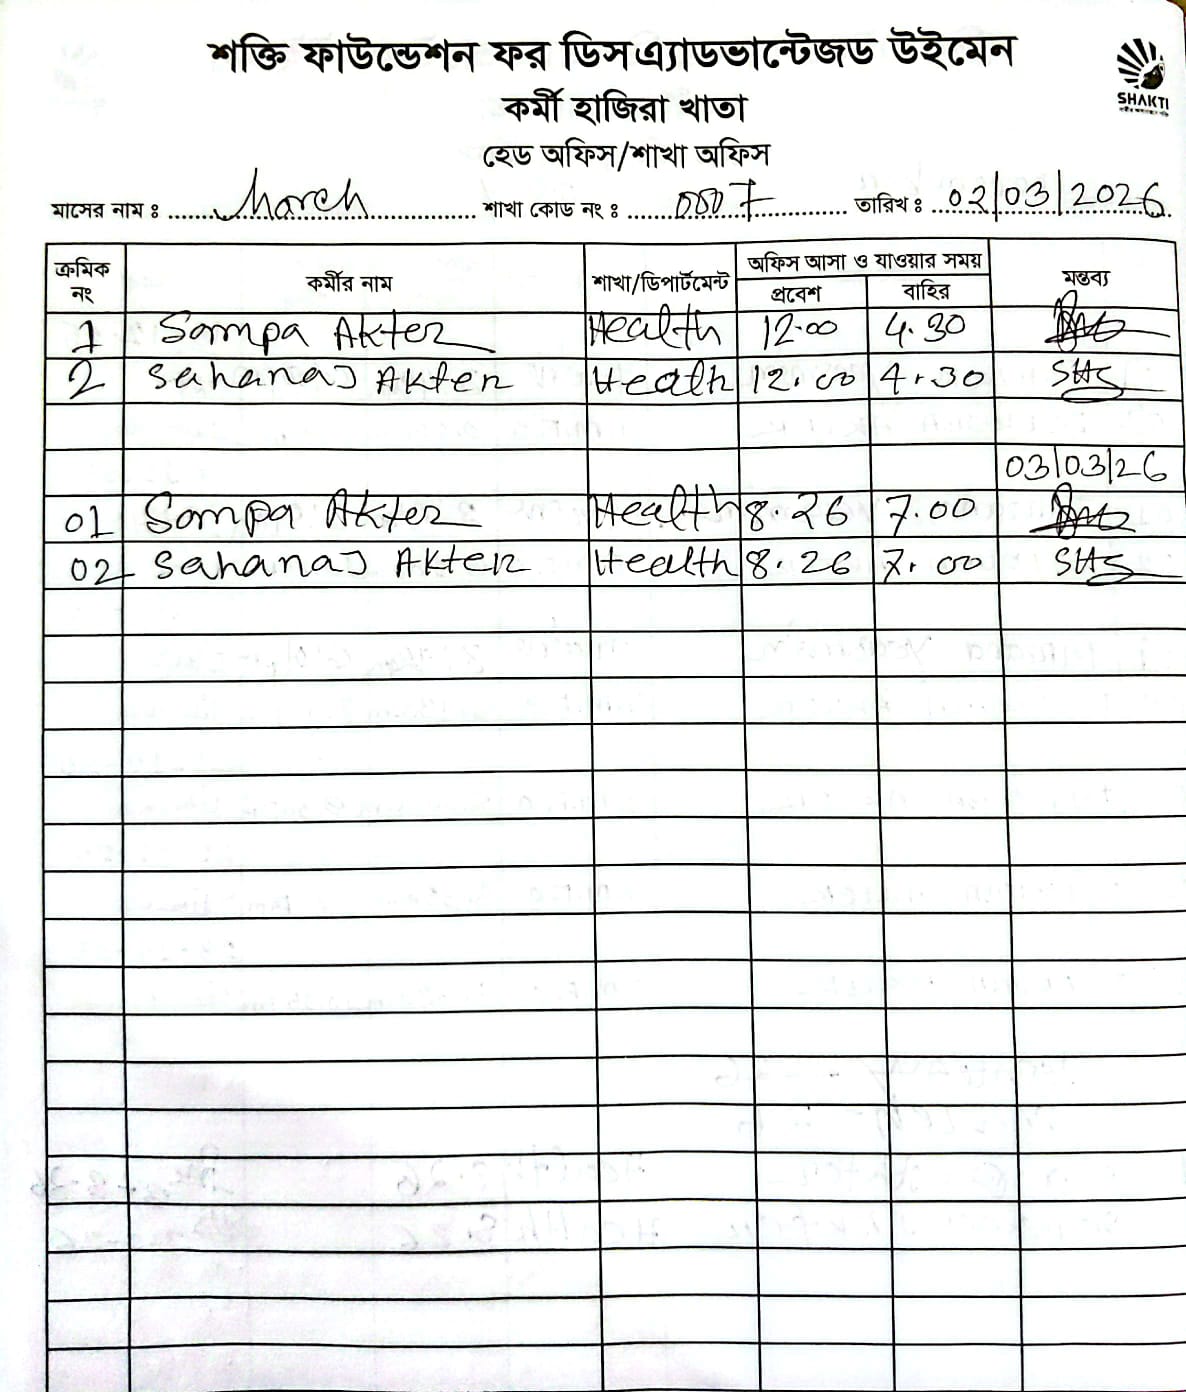 শক্তি ফাউন্ডেশন ফর ডিসএ্যাডভান্টেজড উইমেন
SHAKTI
কর্মী হাজিরা খাতা
হেড অফিস/শাখা অফিস
মাসের নাম : March শাখা কোড নং : 0007 তারিখ : 02/03/2026
ক্রমিক নং কর্মীর নাম শাখা/ডিপার্টমেন্ট অফিস আসা ও যাওয়ার সময় মন্তব্য
প্রবেশ বাহির
1 Sampa Akter Health 12.00 4.30
2 Sahanaj AKter Heath 12.00 4.30 SHS
03/03/26
01 Sampa Akter Health 8.26 7.00
02 Sahanaj AKter Health 8.26 7.00 SHS